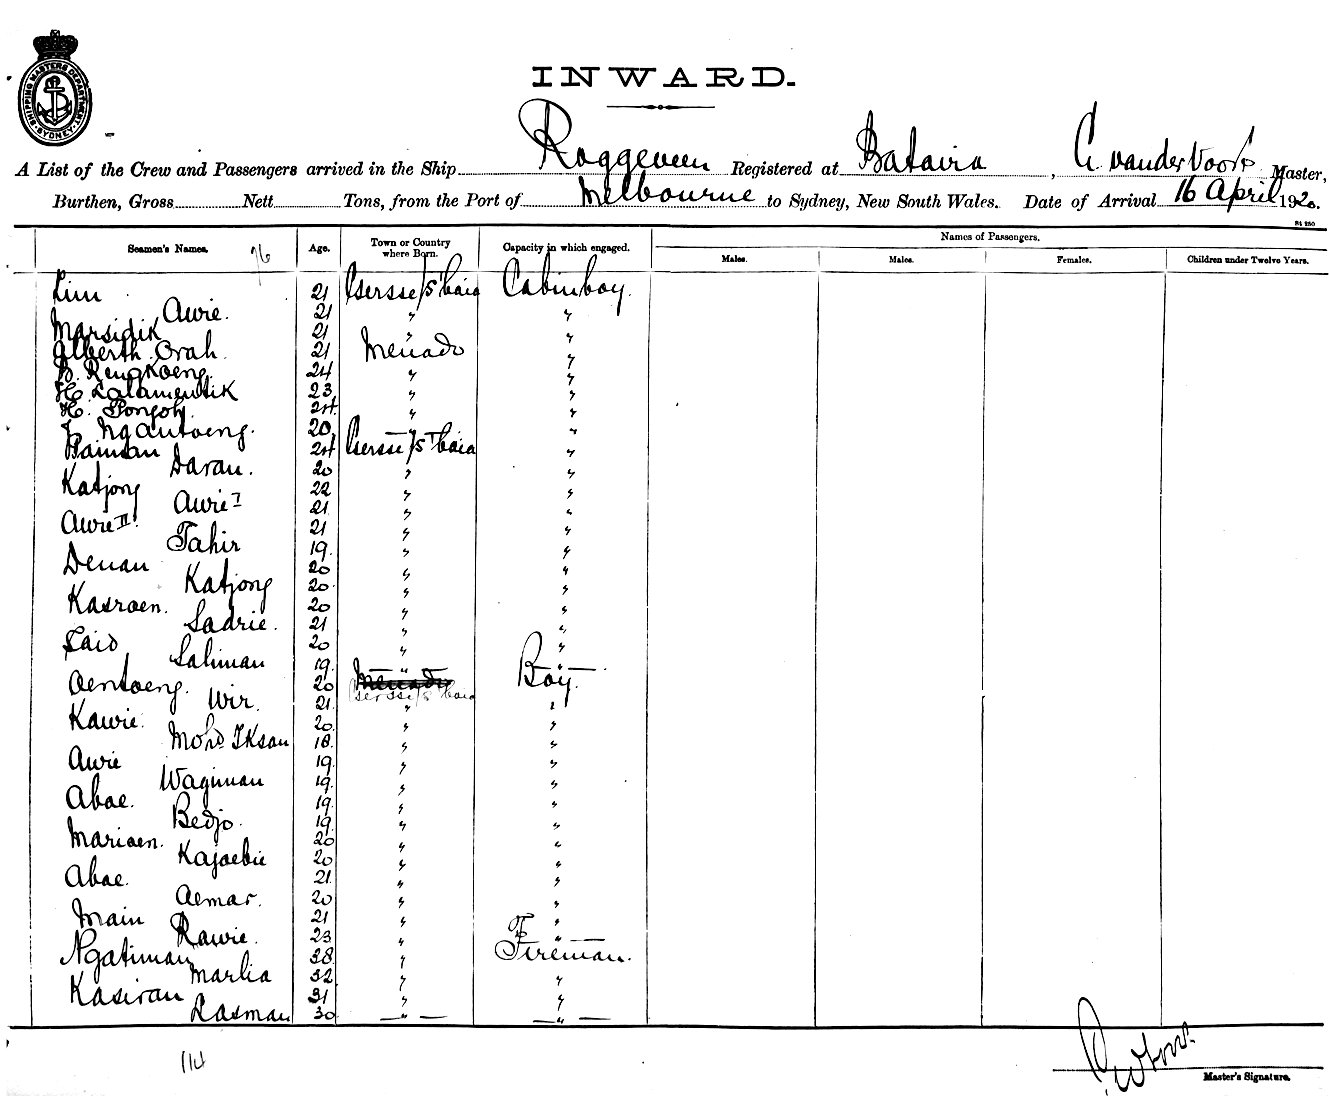 SHIPPING MASTERS DEPARTMENT
SYDNEY
INWARD.
A List of the Crew and Passengers arrived in the Ship Roggeveen Registered at Batavia, G. van der Voort Master,
Burthen, Gross Nett Tons, from the Port of Melbourne to Sydney, New South Wales. Date of Arrival 16 April 1920.
Seamen's Names. 76 Age. Town or Country where Born. Capacity in which engaged. Names of Passengers.
Males. Males. Females. Children under Twelve Years.
Lim 21 Gersse/S'baia Cabinboy.
Awie. 21 " "
Marsidik 21 " "
Alberth Orah. 21 Menado "
Rengkoeng 24 " "
H. Lalamentik 23 " "
H. Pongoh. 24 " "
Ngantoeng. 20 " "
Naiman 24 Gersse/S'baia "
Daran. 20 " "
Katjong 22 " "
Awie I 21 " "
Awie II. 21 " "
Tahir 19. " "
Denan 20 " "
Katjong 20 " "
Kasroen. 20 " "
Sadrie. 21 " "
Said 20 " "
Saliman 19. " "
Aentoeng. 20 Menado Gersse/S'baia Boy.
Wir. 21. " "
Kawie. 20. " "
Mohd Iksan 18. " "
Awie 19. " "
Wagiman 19. " "
Abae. 19. " "
Bedjo. 19. " "
Marioen. 20 " "
Kajaebie 20 " "
Abae. 21. " "
Aemar. 20 " "
Main 21 " "
Rawie. 23 " "
Ngatiman 38 " Fireman.
Marlia 32 " "
Kasiran 31 " "
Lasman 30 " "
Master's Signature.